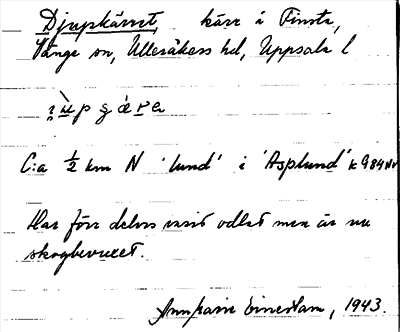 Djupkärret, kärr i Finsta,
Vänge sn, Ulleråkers hd, Uppsala l
C:a ½ km N 'lund' i 'Asplund' k 984 NV
Har förr delvis varit odlat men är nu
skogbevuxet.
1943.